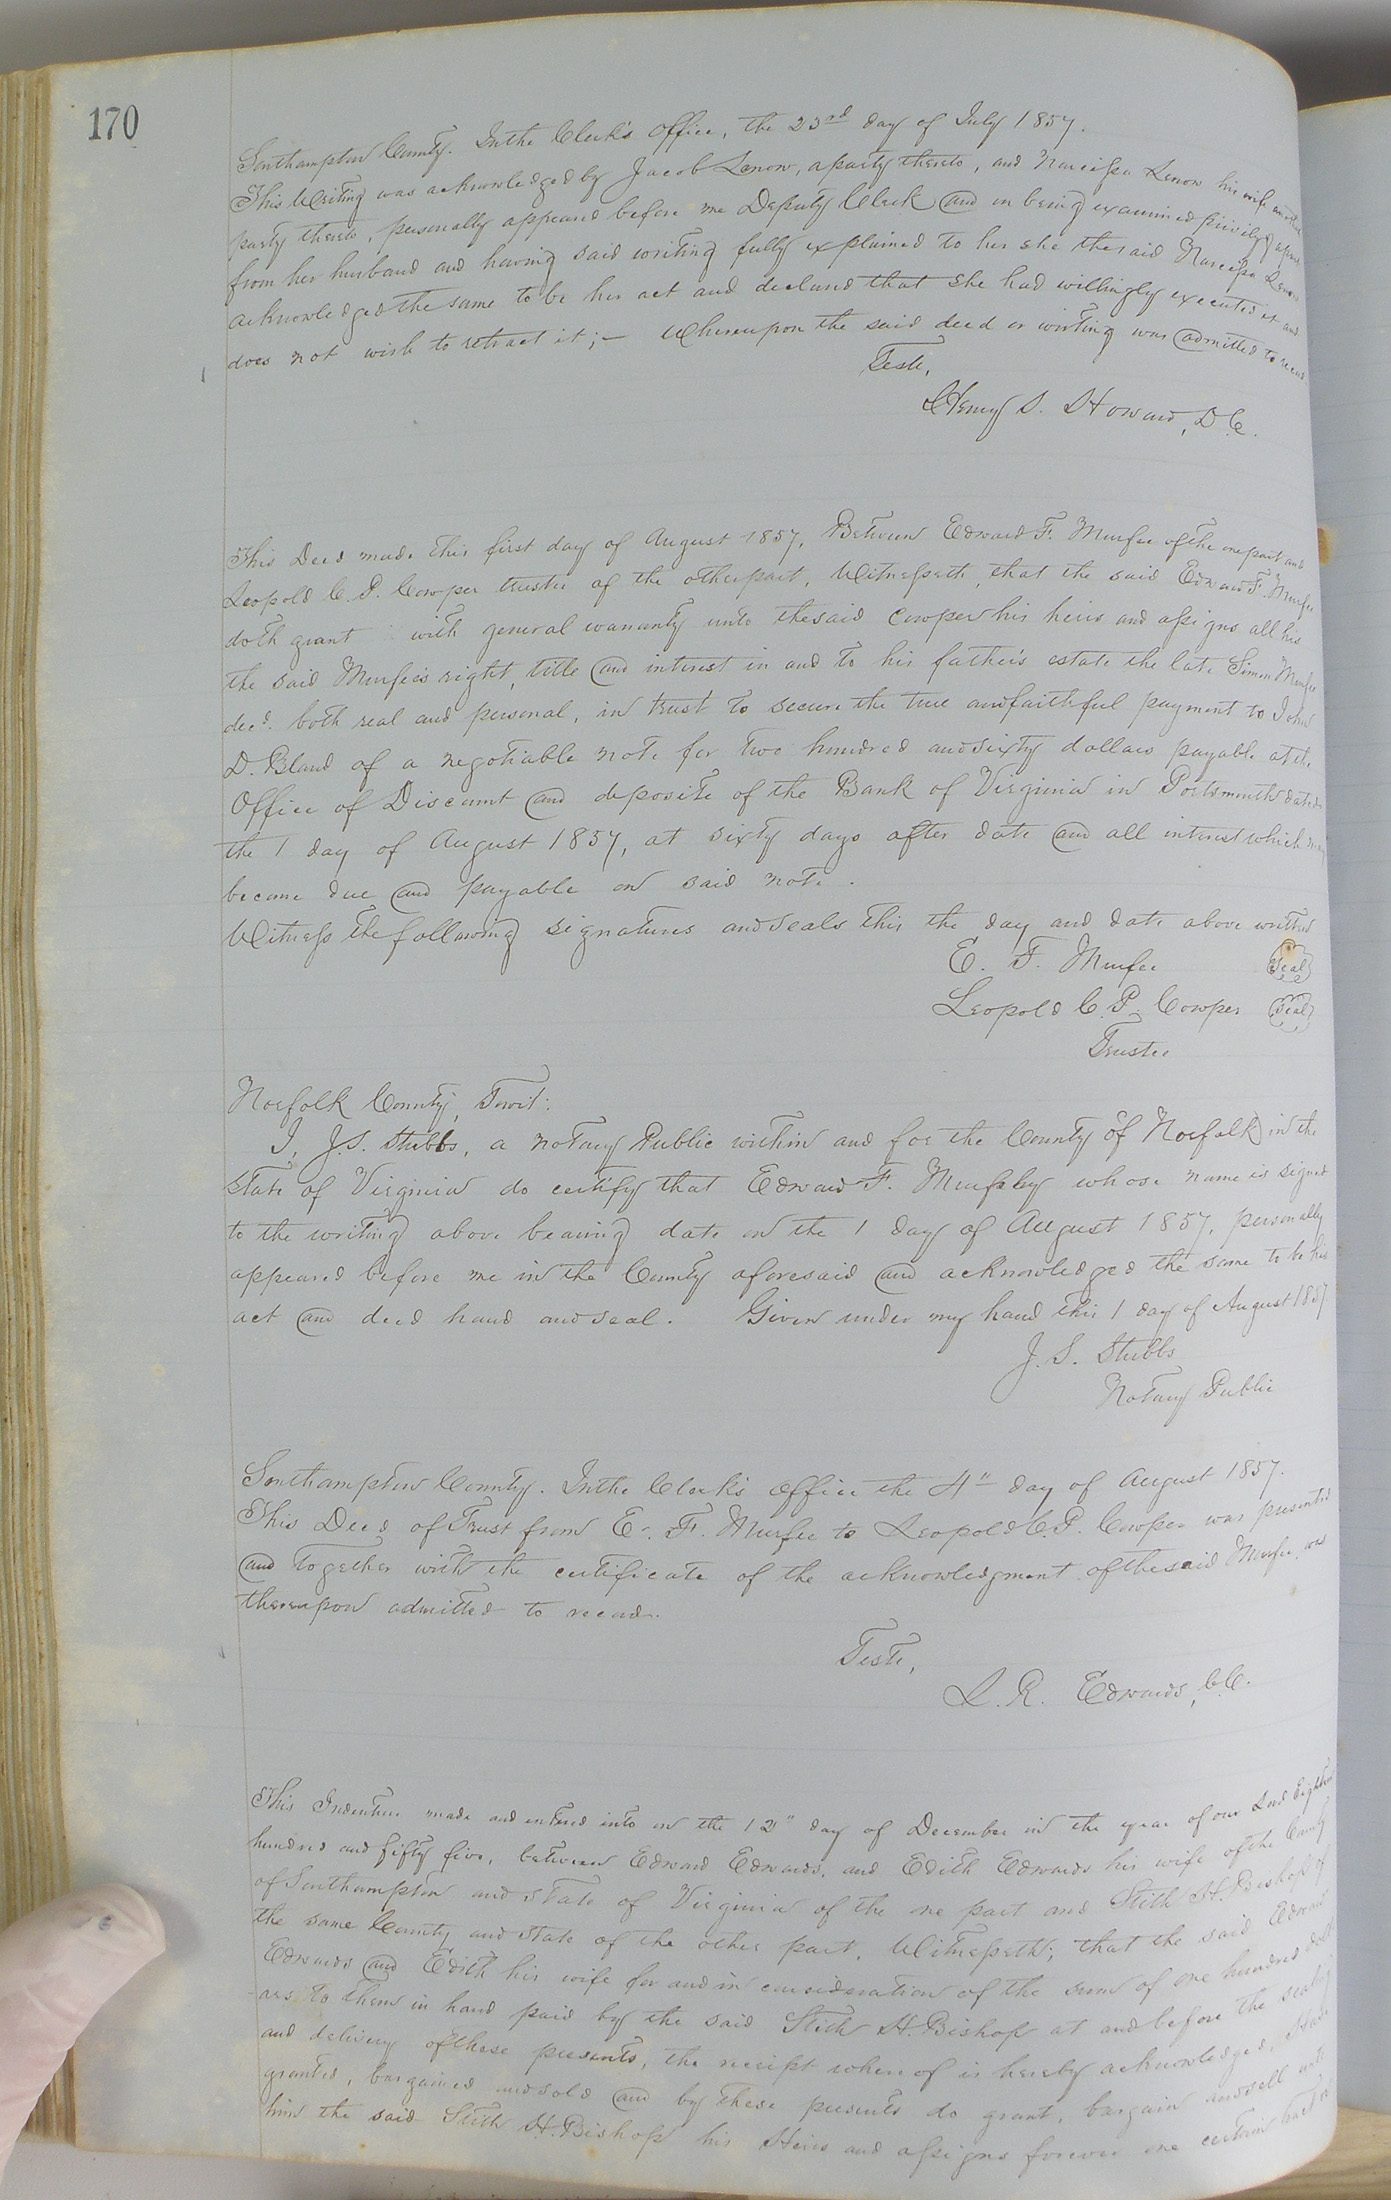 170
Southampton County. In the Clerk's Office, the 23rd day of July 1857.
This Writing was acknowledged by Jacob Lenow, a party thereto, and Narcissa Lenow his wife another
party thereto, personally appeared before me Deputy Clerk and on being examined privily apart
from her husband and having said writing fully explained to her she the said Narcissa Lenow
acknowledged the same to be her act and declared that she had willingly executed it and
does not wish to retract it;— Whereupon the said deed or writing was admitted to record
Teste,
Henry S. Howard, D.C.
This Deed made this first day of August 1857, Between Edward F. Murfee of the one part and
Leopold C. P. Cowper trustee of the other part, Witnesseth, that the said Edward F. Murfee
doth grant with general warranty unto the said Cowper his heirs and assigns all his
the said Murfee's right, title and interest in and to his father's estate the late Simon Murfee
decd. both real and personal, in trust to secure the true and faithful payment to John
D. Bland of a negotiable note for two hundred and sixty dollars payable at the
Office of Discount and deposite of the Bank of Virginia in Portsmouth dated
the 1 day of August 1857, at sixty days after date and all interest which may
become due and payable on said note.
Witness the following signatures and seals this the day and date above written
E. F. Murfee Seal
Leopold C. P. Cowper Seal
Trustee
Norfolk County, Towit:
I, J. S. Stubbs, a notary Public within and for the County of Norfolk in the
state of Virginia do certify that Edward F. Murphey whose name is signed
to the writing above bearing date on the 1 day of August 1857, personally
appeared before me in the County aforesaid and acknowledged the same to be his
act and deed hand and seal. Given under my hand this 1 day of August 1857
J. S. Stubbs
Notary Public
Southampton County. In the Clerk's Office the 4th day of August 1857.
This Deed of Trust from E. F. Murfee to Leopold C. P. Cowper was presented
and together with the certificate of the acknowledgment of the said Murfee, was
thereupon admitted to record.
Teste,
L. R. Edwards, C.C.
This Indenture made and entered into on the 12" day of December in the year of our Lord Eighteen
hundred and fifty five, between Edward Edwards, and Edith Edwards his wife of the County
of Southampton and State of Virginia of the one part and Stith H. Bishop of
the same County and State of the other part, Witnesseth; that the said Edward
Edwards and Edith his wife for and in consideration of the sum of one hundred doll
ars to them in hand paid by the said Stith H. Bishop at and before the sealing
and delivery of these presents, the receipt whereof is hereby acknowledged, Have
granted, bargained and sold and by these presents do grant, bargain and sell unto
him the said Stith H. Bishop his Heirs and assigns forever one certain tract of